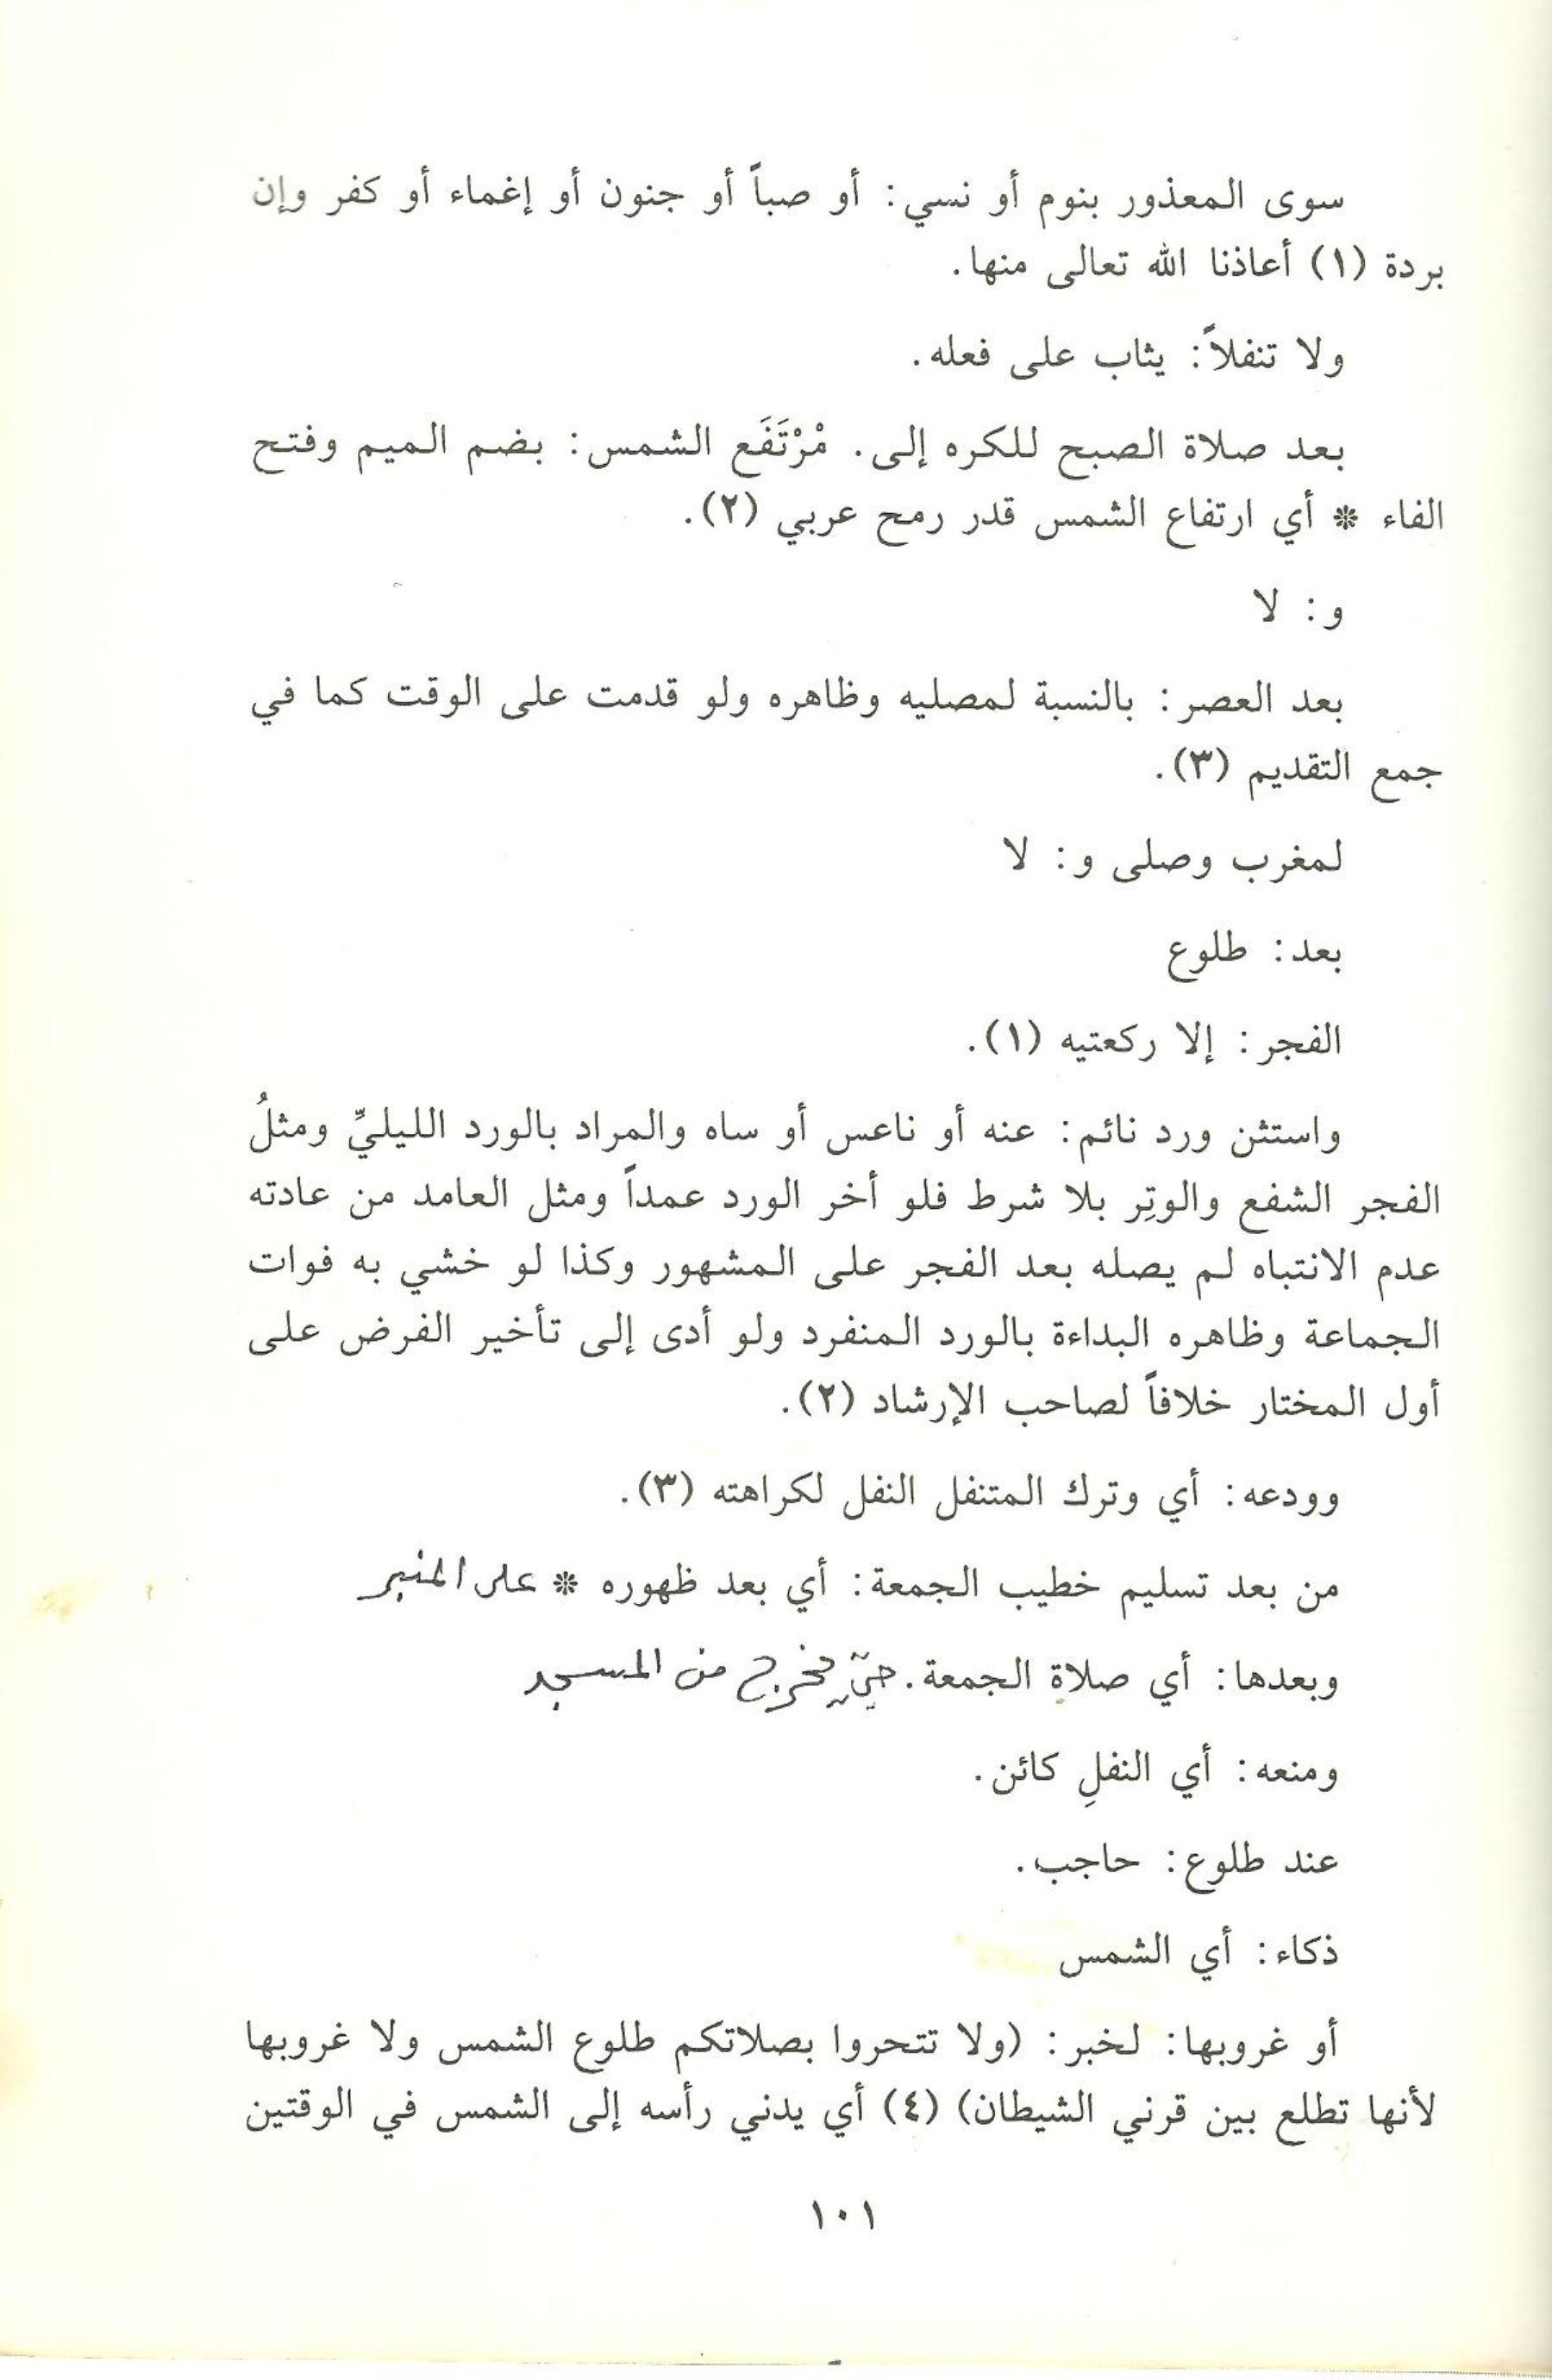 سوى المعذور بنوم أو نسي: أو صباً أو جنون أو إغماء أو كفر وإن
بردة (١) أعاذنا الله تعالى منها.
ولا تنفلاً: يثاب على فعله.
بعد صلاة الصبح للكره إلى. مْرْتَفَع الشمس: بضم الميم وفتح
الفاء * أي ارتفاع الشمس قدر رمح عربي (٢).
و: لا
بعد العصر: بالنسبة لمصليه وظاهره ولو قدمت على الوقت كما في
جمع التقديم (٣).
لمغرب وصلى و: لا
بعد: طلوع
الفجر: إلا ركعتيه (١).
واستثن ورد نائم: عنه أو ناعس أو ساه والمراد بالورد الليليِّ ومثلُ
الفجر الشفع والوتِر بلا شرط فلو أخر الورد عمداً ومثل العامد من عادته
عدم الانتباه لم يصله بعد الفجر على المشهور وكذا لو خشي به فوات
الجماعة وظاهره البداءة بالورد المنفرد ولو أدى إلى تأخير الفرض على
أول المختار خلافاً لصاحب الإرشاد (٢).
وودعه: أي وترك المتنفل النفل لكراهته (٣).
من بعد تسليم خطيب الجمعة: أي بعد ظهوره * على المنبر
وبعدها: أي صلاة الجمعة. حتى يخرج من المسجد
ومنعه: أي النفلِ كائن.
عند طلوع: حاجب.
ذكاء: أي الشمس
أو غروبها: لخبر: (ولا تتحروا بصلاتكم طلوع الشمس ولا غروبها
لأنها تطلع بين قرني الشيطان) (٤) أي يدني رأسه إلى الشمس في الوقتين
١٠١